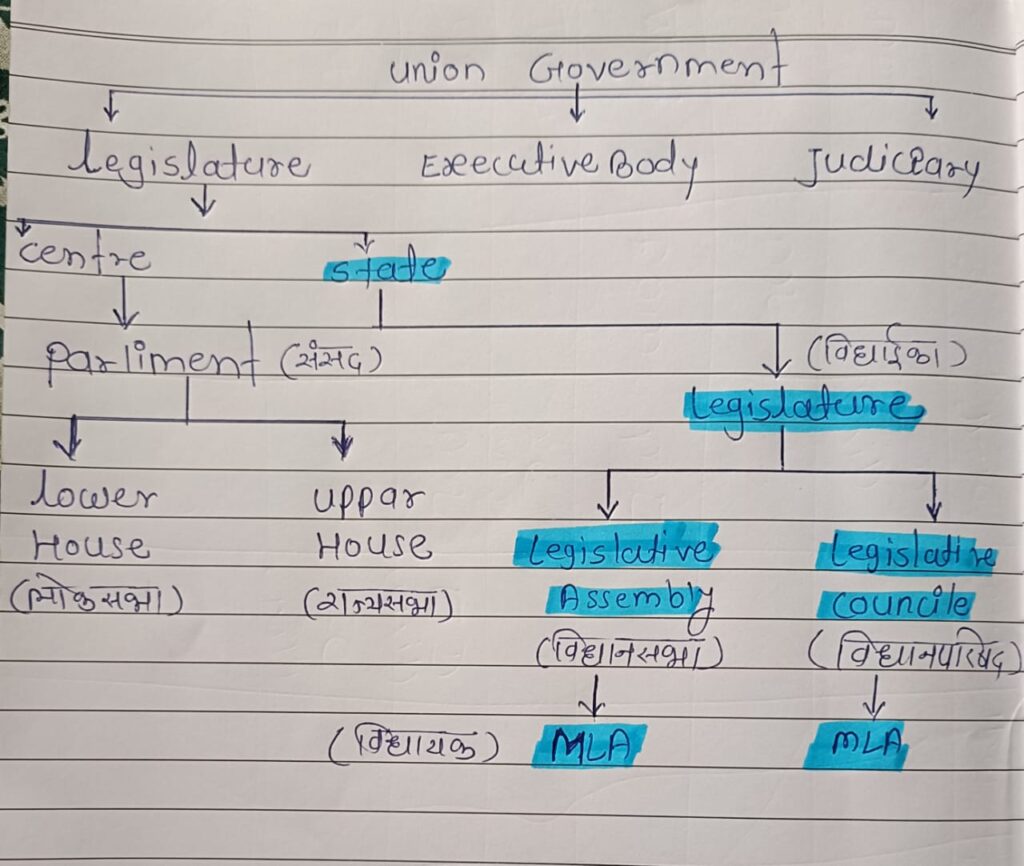 Union Government
Legislature Executive Body Judiciary
Centre State
Parliment (संसद) (विधाईका)
Legislature
Lower Uppar
House House Legislative Legislative
(लोकसभा) (राज्यसभा) Assembly Councile
(विधानसभा) (विधानपरिषद)
(विधायक) MLA MLA